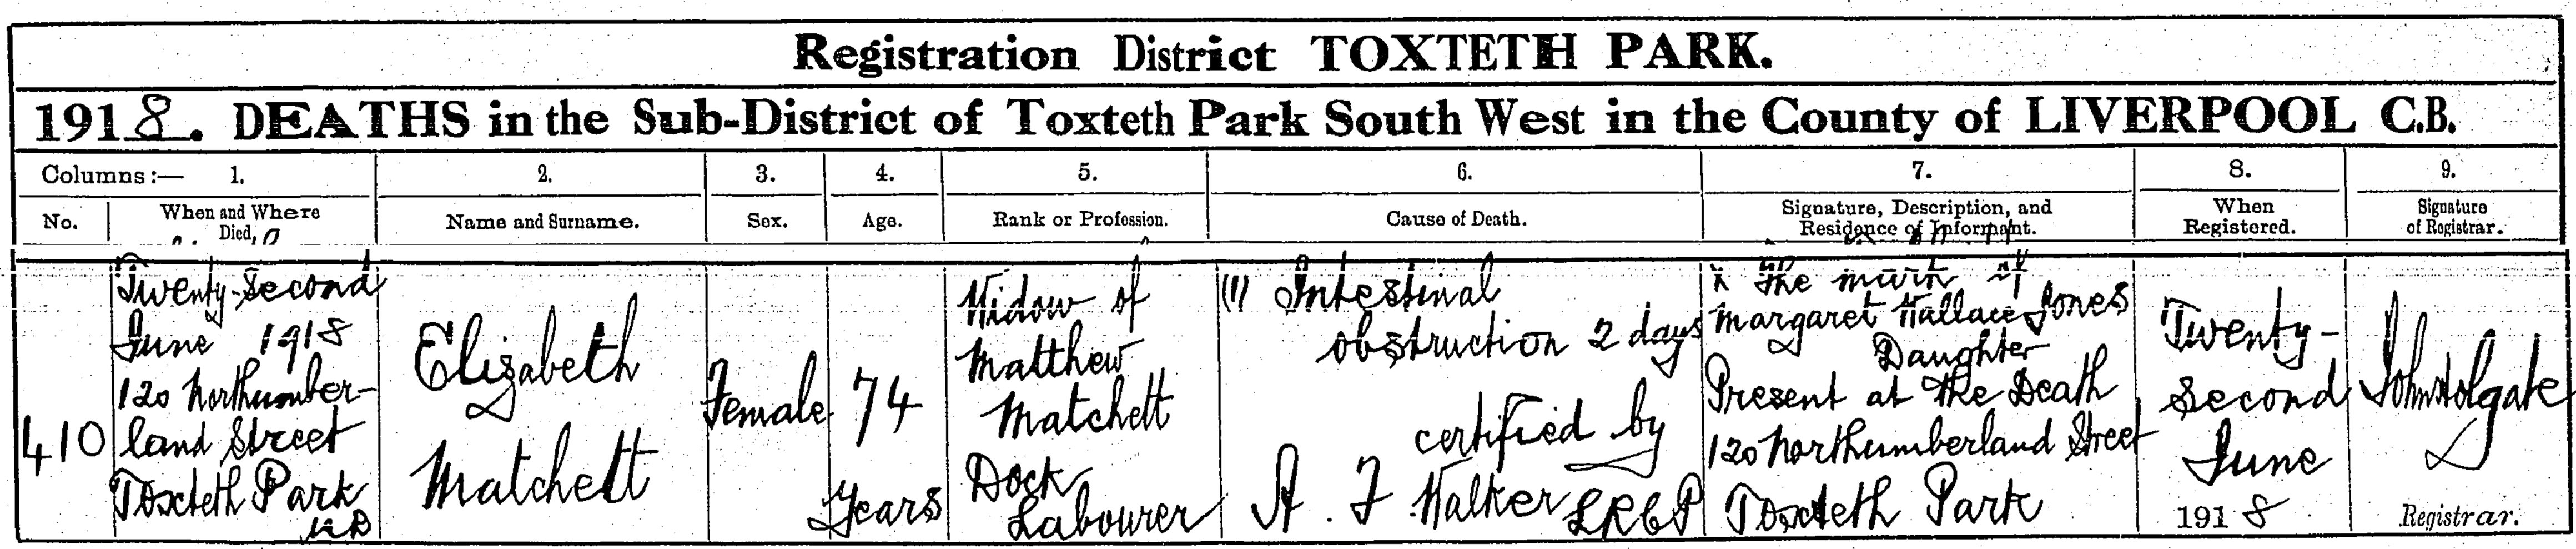 Registration District TOXTETH PARK.
1918. DEATHS in the Sub-District of Toxteth Park South West in the County of LIVERPOOL C.B.
Columns:— 1. 2. 3. 4. 5. 6. 7. 8. 9.
No.
When and Where
Died.
Name and Surname.
Sex.
Age.
Rank or Profession.
Cause of Death.
Signature, Description, and
Residence of Informant.
When
Registered.
Signature
of Registrar.
410
Twenty-Second
June 1918
120 Northumber-
land Street
Toxteth Park
Elizabeth
Matchett
Female
74
Years
Widow of
Matthew
Matchett
Dock
Labourer
(1) Intestinal
obstruction 2 days
certified by
A. F. Walker LRCP
X The mark of
Margaret Wallace Jones
Daughter
Present at the Death
120 Northumberland Street
Toxteth Park
Twenty-
Second
June
1918
John Holgate
Registrar.